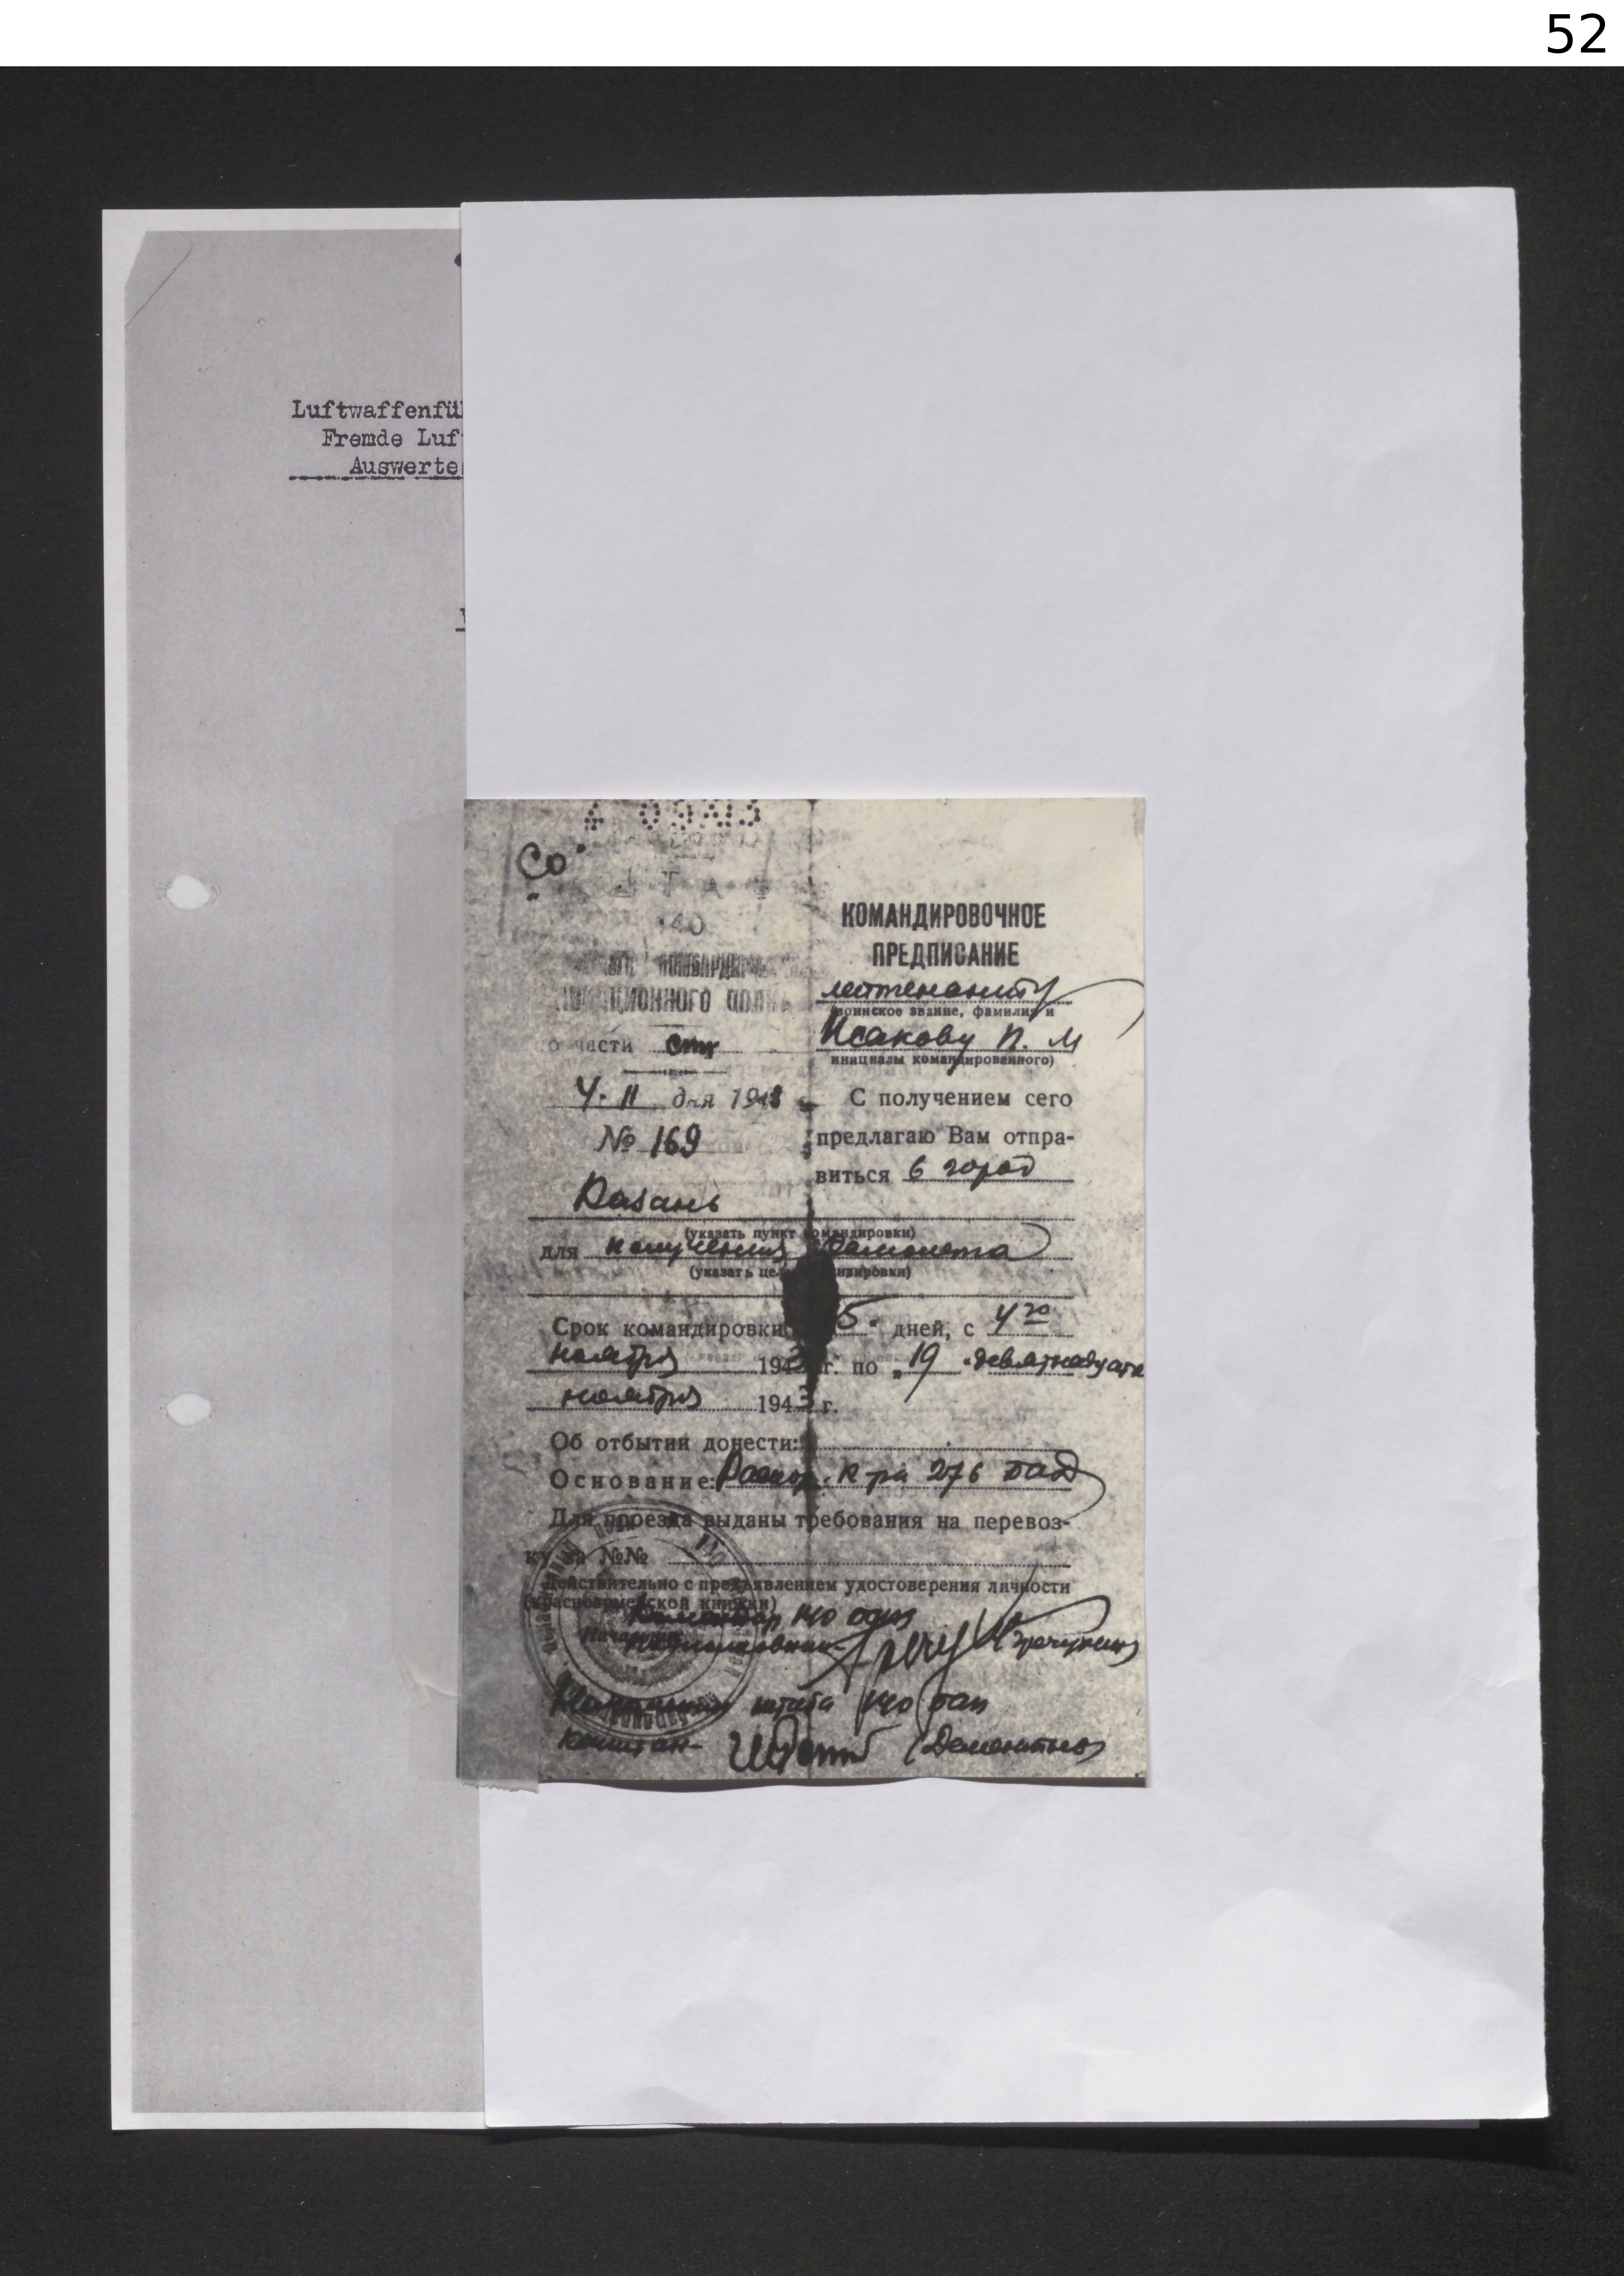 52
Luftwaffenfü
Fremde Luf
Auswerte
Со
140
АВИАЦИОННОГО ПОЛК
по части стр
4.11 дня 1943
№ 169
КОМАНДИРОВОЧНОЕ
ПРЕДПИСАНИЕ
лейтенанту
(воинское звание, фамилия и
Исакову П. М
инициалы командированного)
С получением сего
предлагаю Вам отпра-
виться в город
Казань
(указать пункт командировки)
для получения самолета
(указать цель командировки)
Срок командировки 15 дней, с 4го
ноября 1943 г. по „19 девятнадцата
ноября 1943 г.
Об отбытии донести:
Основание: Распор. к-ра 276 бад
Для проезда выданы требования на перевоз-
ку за №№
Действительно с предъявлением удостоверения личности
(красноармейской книжки)
Командир 140
Подполковник
Начальник штаба 140 бап
капитан- (Дементьев)